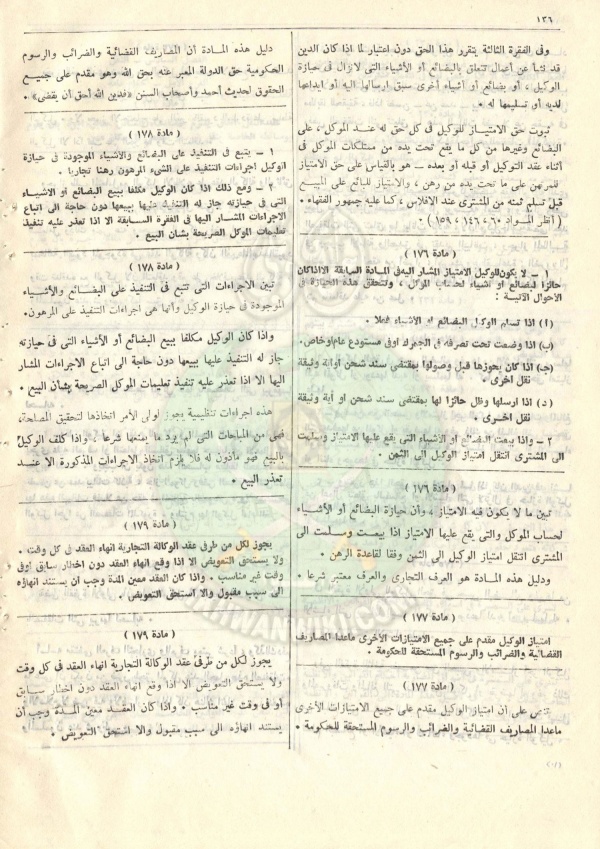 ١٣٦
وفى الفقرة الثالثة يتقرر هذا الحق دون اعتبار لما اذا كان الدين
قد نشأ عن أعمال تتعلق بالبضائع أو الأشياء التى لاتزال فى حيازة
الوكيل ، أو بضائع أو أشياء أخرى سبق ارسالها اليه أو ايداعها
لديه أو تسليمها له .
ثبوت حق الامتياز للوكيل فى كل حق له عند الموكل ، على
البضائع وغيرها من كل ما يقع تحت يده من ممتلكات الموكل فى
أثناء عقد التوكيل أو قبله أو بعده ـ هو بالقياس على حق الامتياز
للمرتهن على ما تحت يده من رهن ، والامتياز للبائع على المبيع
قبل تسلم ثمنه من المشترى عند الافلاس ، كما عليه جمهور الفقهاء .
( أنظر المواد ٦٠ ، ١٤٦ ، ١٥٩ ) .
( مادة ١٧٦ )
١ ـ لا يكون للوكيل الامتياز المشار اليه فى المادة السابقة الا اذا كان
حائزا لبضائع أو أشياء لحساب الموكل ، وتتحقق هذه الحيازة فى
الأحوال الآتية :
( أ ) اذا تسلم الوكيل البضائع أو الأشياء فعلا .
(ب) اذا وضعت تحت تصرفه فى الجمرك أو فى مستودع عام أو خاص .
(جـ) اذا كان يحوزها قبل وصولها بمقتضى سند شحن أو أية وثيقة
نقل أخرى .
( د ) اذا ارسلها وظل حائزا لها بمقتضى سند شحن أو أية وثيقة
نقل أخرى .
٢ ـ واذا بيعت البضائع أو الأشياء التى يقع عليها الامتياز وسلمت
الى المشترى انتقل امتياز الوكيل الى الثمن .
( مادة ١٧٦ )
تبين ما لا يكون فيه الامتياز ، وأن حيازة البضائع أو الأشياء
لحساب الموكل والتى يقع عليها الامتياز اذا بيعت وسلمت الى
المشترى انتقل امتياز الوكيل الى الثمن وفقا لقاعدة الرهن .
ودليل هذه المادة هو العرف التجارى والعرف معتبر شرعا .
( مادة ١٧٧ )
امتياز الوكيل مقدم على جميع الامتيازات الأخرى ماعدا المصاريف
القضائية والضرائب والرسوم المستحقة للحكومة .
( مادة ١٧٧ )
تنص على أن امتياز الوكيل مقدم على جميع الامتيازات الأخرى
ماعدا المصاريف القضائية والضرائب والرسوم المستحقة للحكومة .
دليل هذه المادة أن المصاريف القضائية والضرائب والرسوم
الحكومية حق الدولة المعبر عنه بحق الله وهو مقدم على جميع
الحقوق لحديث أحمد وأصحاب السنن «فدين الله أحق أن يقضى» .
( مادة ١٧٨ )
١ ـ يتبع فى التنفيذ على البضائع والأشياء الموجودة فى حيازة
الوكيل اجراءات التنفيذ على الشىء المرهون رهنا تجاريا .
٢ ـ ومع ذلك اذا كان الوكيل مكلفا ببيع البضائع أو الأشياء
التى فى حيازته جاز له التنفيذ عليها ببيعها دون حاجة الى اتباع
الاجراءات المشار اليها فى الفقرة السابقة الا اذا تعذر عليه تنفيذ
تعليمات الموكل الصريحة بشأن البيع .
( مادة ١٧٨ )
تبين الاجراءات التى تتبع فى التنفيذ على البضائع والأشياء
الموجودة فى حيازة الوكيل وأنها هى اجراءات التنفيذ على المرهون .
واذا كان الوكيل مكلفا ببيع البضائع أو الأشياء التى فى حيازته
جاز له التنفيذ عليها ببيعها دون حاجة الى اتباع الاجراءات المشار
اليها الا اذا تعذر عليه تنفيذ تعليمات الموكل الصريحة بشأن البيع .
هذه اجراءات تنظيمية يجوز لولى الأمر اتخاذها لتحقيق المصلحة،
فهى من المباحات التى لم يرد ما يمنعها شرعا ، واذا كلف الوكيل
بالبيع فهو مأذون له فلا يلزم اتخاذ الاجراءات المذكورة الا عند
تعذر البيع .
( مادة ١٧٩ )
يجوز لكل من طرفى عقد الوكالة التجارية انهاء العقد فى كل وقت .
ولا يستحق التعويض الا اذا وقع انهاء العقد دون اخطار سابق أو فى
وقت غير مناسب . واذا كان العقد معين المدة وجب أن يستند انهاؤه
الى سبب مقبول والا استحق التعويض .
( مادة ١٧٩ )
يجوز لكل من طرفى عقد الوكالة التجارية انهاء العقد فى كل وقت
ولا يستحق التعويض الا اذا وقع انهاء العقد دون اخطار سابق
أو فى وقت غير مناسب . واذا كان العقد معين المدة وجب أن
يستند انهاؤه الى سبب مقبول والا استحق التعويض .